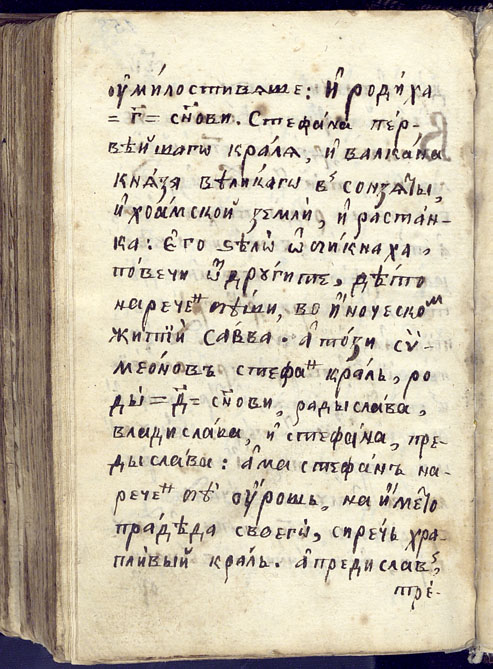 оу҆ми́лостивѧше: И҆ роди́ха
= г҃ = сн҃ови. Стефа́на пе́р-
ве́йшагѡ кра́лѧ, и҆ валка́на
кнѧ́зѧ вѣли́кагѡ в сонзѧ́ты,
и҆ хоа́мской земли́, и҆ раста́н-
ка: є҆го ѕѣлѡ ѡ҆чи́кнаха,
пове́чи ѿ дрꙋ́гите, дѣто
нарече́н , во и҆́ноческом
житїй са́вва. а҆ то́зи сѵ-
мео́новъ стефан кра́ль, ро
ды = д҃ = сн҃ови, радысла́ва,
владисла́ва, и҆ стефа́на, пре-
дысла́ва: а҆ма стефанъ на-
речен оу҆́рошь, на и҆́мето
прадѣда своегѡ̀, сиречь хра-
пли́вый кра́ль. а҆ предислав,
тре́-